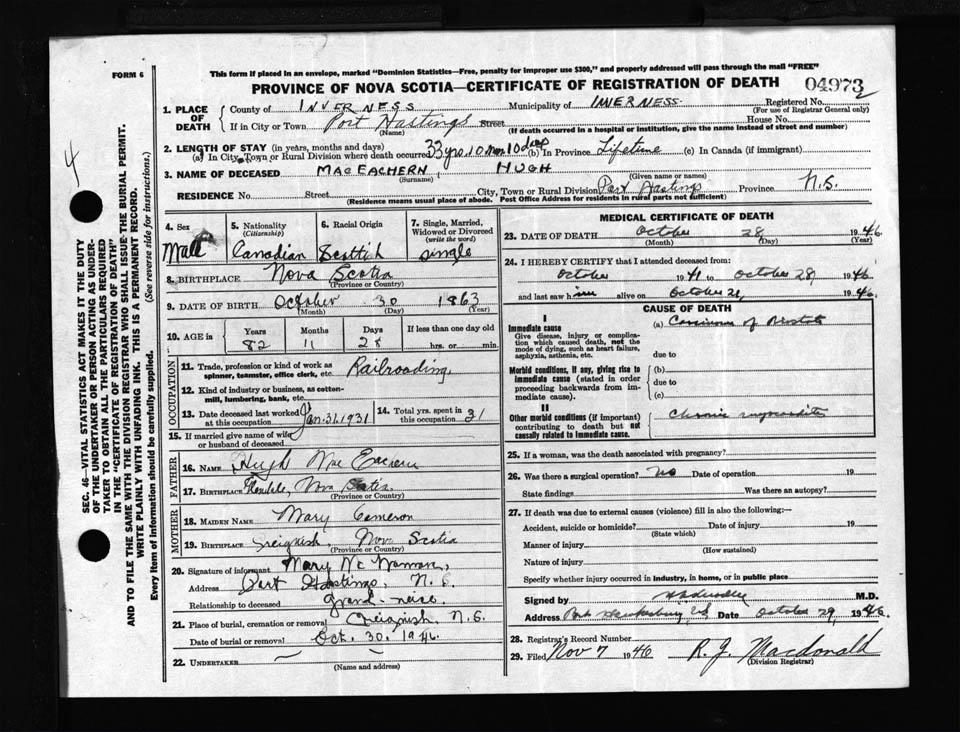 FORM 6
This form if placed in an envelope, marked "Dominion Statistics—Free, penalty for improper use $300," and properly addressed will pass through the mail "FREE"
PROVINCE OF NOVA SCOTIA—CERTIFICATE OF REGISTRATION OF DEATH
04973
4
SEC. 46—VITAL STATISTICS ACT MAKES IT THE DUTY
OF THE UNDERTAKER OR PERSON ACTING AS UNDER-
TAKER TO OBTAIN ALL THE PARTICULARS REQUIRED
IN THE "CERTIFICATE OF REGISTRATION OF DEATH"
AND TO FILE THE SAME WITH THE DIVISION REGISTRAR WHO SHALL ISSUE THE BURIAL PERMIT.
WRITE PLAINLY WITH UNFADING INK. THIS IS A PERMANENT RECORD.
Every item of information should be carefully supplied. (See reverse side for instructions.)
1. PLACE OF DEATH County of INVERNESS Municipality of INVERNESS Registered No.
(For use of Registrar General only)
If in City or Town Port Hastings Street House No.
(Name) (If death occurred in a hospital or institution, give the name instead of street and number)
2. LENGTH OF STAY (in years, months and days)
(a) In City, Town or Rural Division where death occurred 33 yrs. 10 mos. 10 days (b) In Province Lifetime (c) In Canada (if immigrant)
3. NAME OF DECEASED MACEACHERN HUGH
(Surname) (Given name or names)
RESIDENCE No. Street City, Town or Rural Division Port Hastings Province N.S.
(Residence means usual place of abode. Post Office Address for residents in rural parts not sufficient)
4. Sex Male
5. Nationality (Citizenship) Canadian
6. Racial Origin Scottish
7. Single, Married, Widowed or Divorced (write the word) Single
8. BIRTHPLACE Nova Scotia
(Province or Country)
9. DATE OF BIRTH October 30 1863
(Month) (Day) (Year)
10. AGE in Years 82 Months 11 Days 28 If less than one day old hrs. or min.
OCCUPATION
11. Trade, profession or kind of work as spinner, teamster, office clerk, etc. Railroading
12. Kind of industry or business, as cotton-mill, lumbering, bank, etc.
13. Date deceased last worked at this occupation Jan. 31. 1931
14. Total yrs. spent in this occupation 31
15. If married give name of wife or husband of deceased
FATHER
16. NAME Hugh Mac Eachern
17. BIRTHPLACE Glendale, Nova Scotia
(Province or Country)
MOTHER
18. MAIDEN NAME Mary Cameron
19. BIRTHPLACE Creignish, Nova Scotia
(Province or Country)
20. Signature of informant Mary Mc
Address Port Hastings, N.S.
Relationship to deceased grand-neice
21. Place of burial, cremation or removal Creignish N.S.
Date of burial or removal Oct. 30. 1946.
22. UNDERTAKER
(Name and address)
MEDICAL CERTIFICATE OF DEATH
23. DATE OF DEATH October 28 1946.
(Month) (Day) (Year)
24. I HEREBY CERTIFY that I attended deceased from:
October 1941 to October 28, 1946
and last saw him alive on October 21, 1946.
CAUSE OF DEATH
I
Immediate cause
Give disease, injury or complication which caused death, not the mode of dying, such as heart failure, asphyxia, asthenia, etc.
(a) Carcinoma of Prostate
due to
Morbid conditions, if any, giving rise to immediate cause (stated in order proceeding backwards from immediate cause).
(b)
due to
(c)
II
Other morbid conditions (if important) contributing to death but not causally related to immediate cause.
Chronic myocarditis
25. If a woman, was the death associated with pregnancy?
26. Was there a surgical operation? no Date of operation 19
State findings Was there an autopsy?
27. If death was due to external causes (violence) fill in also the following:—
Accident, suicide or homicide? Date of injury 19
(State which)
Manner of injury
(How sustained)
Nature of injury
Specify whether injury occurred in industry, in home, or in public place
Signed by M.D.
Address Port Hawkesbury, N.S. Date October 29, 1946.
28. Registrar's Record Number
29. Filed Nov 7 1946 R. J. Macdonald
(Division Registrar)